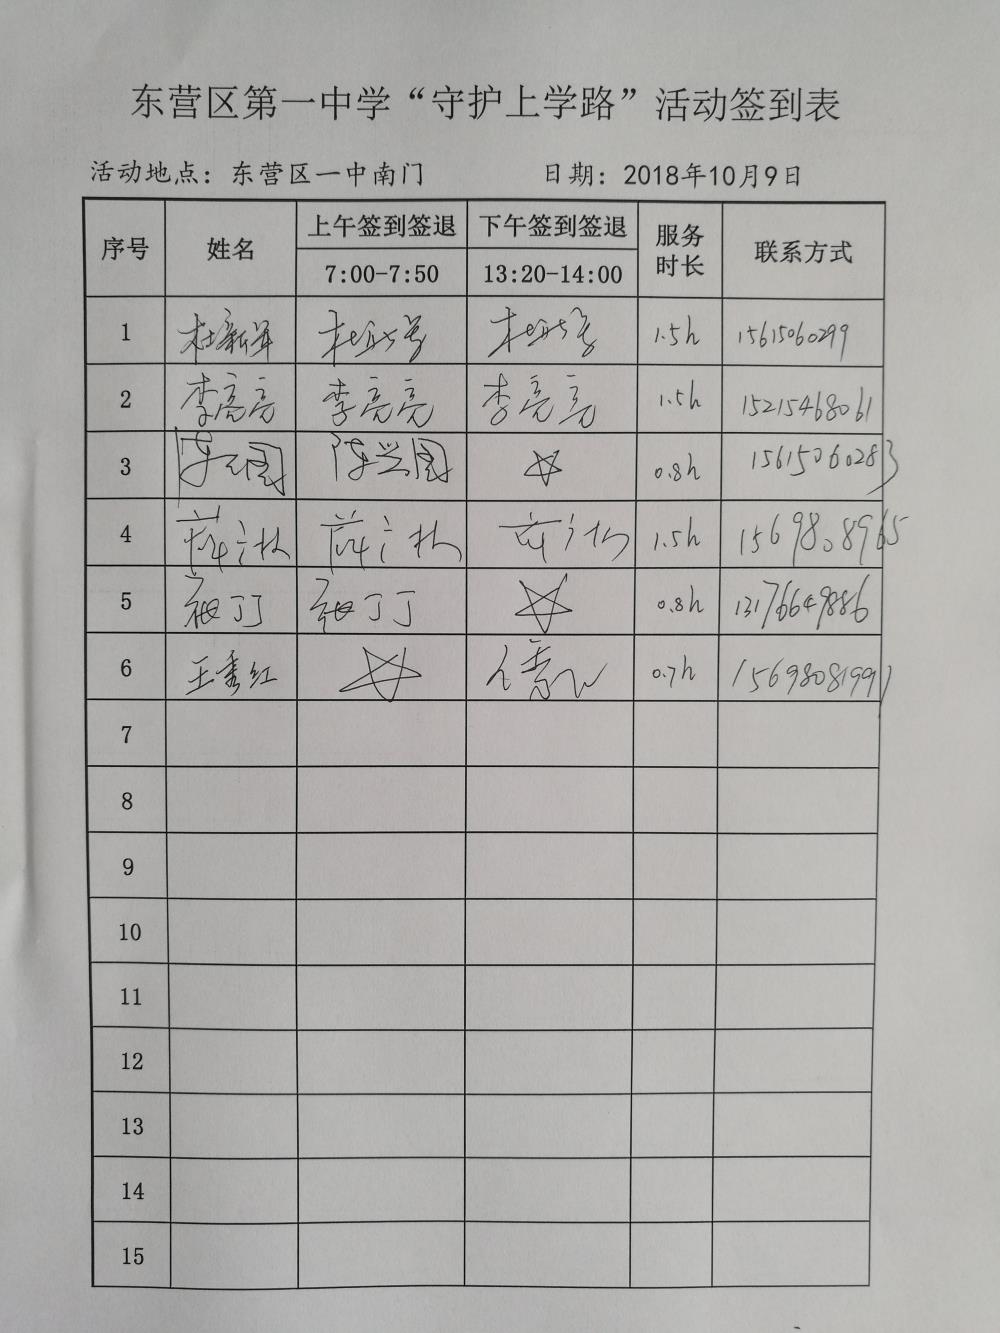 东营区第一中学“守护上学路”活动签到表
活动地点：东营区一中南门 日期：2018年10月9日
序号 姓名 上午签到签退 下午签到签退 服务时长 联系方式
7:00-7:50 13:20-14:00
1 杜新军 1.5h 15615060299
2 李亮亮 李亮亮 李亮亮 1.5h 15215468061
3 陈兴国 陈兴国 ☆ 0.8h 15615060283
4 1.5h
5 丁丁 丁丁 ☆ 0.8h 13176649886
6 王秀红 ☆ 0.7h 15698081991
7
8
9
10
11
12
13
14
15